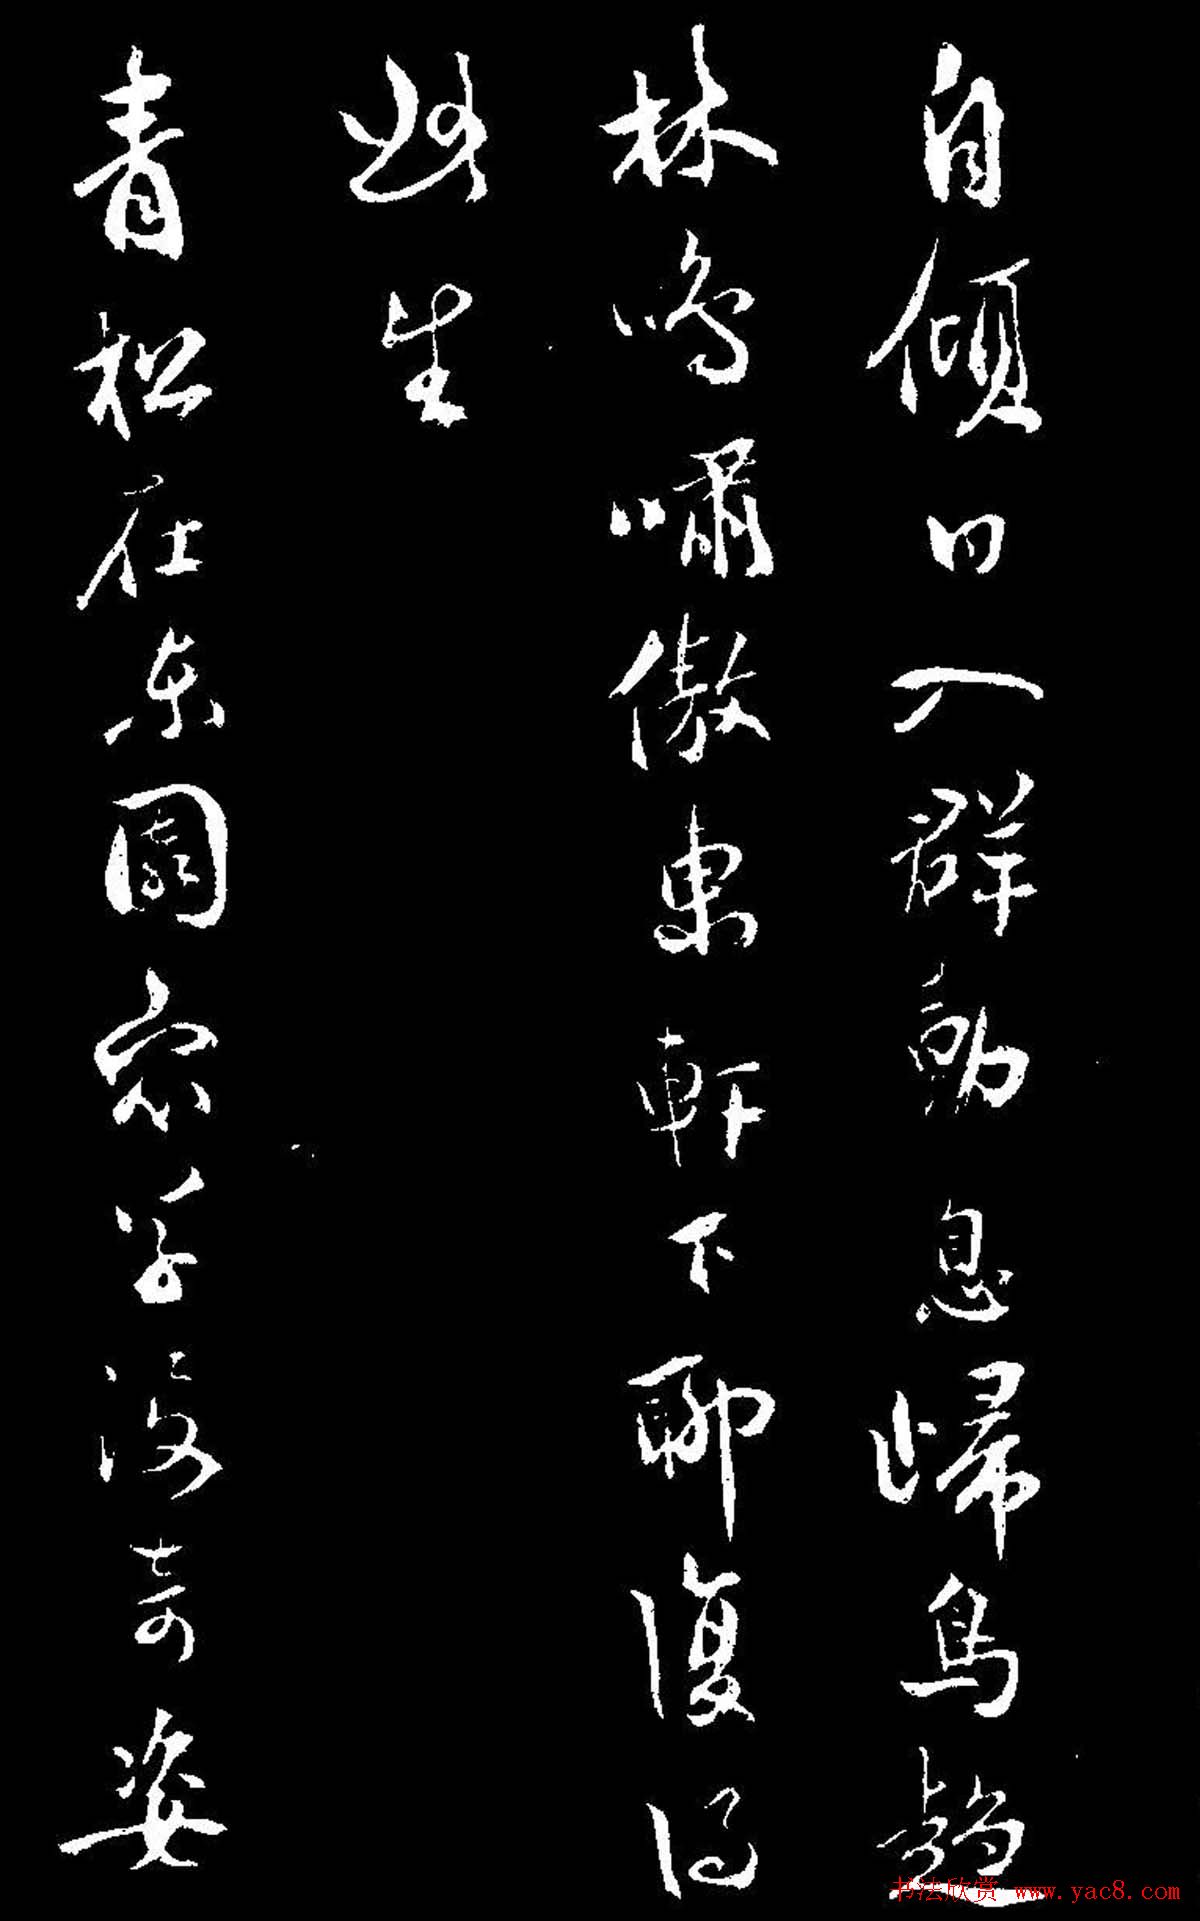 自傾日入群動息歸鳥趨
林鳴嘯傲東軒下聊復得
此生
青松在東園衆草沒奇姿
书法欣赏 www.yac8.com